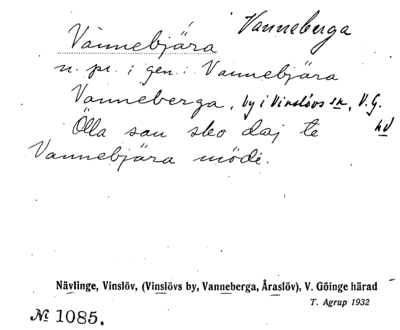 Vannebjära Vanneberga
n. pr. i gen. i Vannebjära
Vanneberga, by i Vinslövs sn, V.G.
Ölla sau sko daj te hd
Vannebjära mödé.
Nävlinge, Vinslöv, (Vinslövs by, Vanneberga, Åraslöv), V. Göinge härad
T. Agrup 1932
№ 1085.